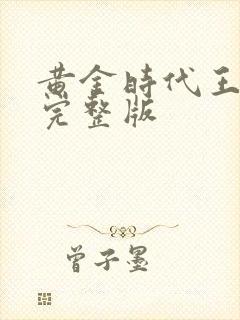 黄金時代王
完整版
曾子墨